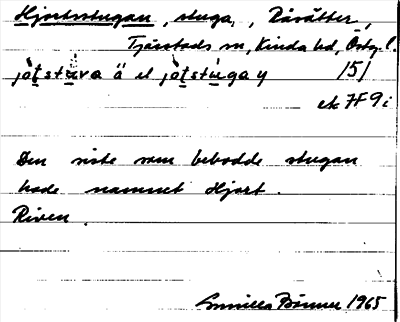 Hjortsstugan, stuga, Råsätter,
Tjärstads sn, Kinda hd, Östg. l.
jo̊tstùva ä el jo̊tstùgay /5/
ek 7F9i
Den siste som bebodde stugan
hade namnet Hjort.
Riven.
Gunilla 1965